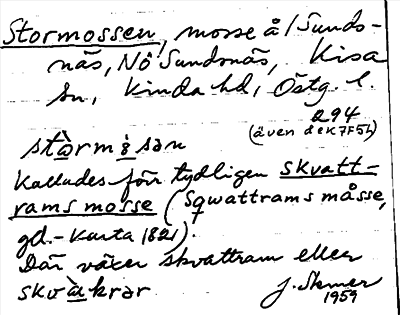 Stormossen, mosse å/Sunds-
näs, NÖ Sundsnäs, Kisa
sn, Kinda hd, Östg. l.
294
(även 8ek7F5h)
stòrmåsan
Kallades förr tydligen skvatt-
rams mosse (Sqwattrams måsse,
gd.-karta 1821).
Där växer skvattram eller
skvàkrar
J. Skmer
1959